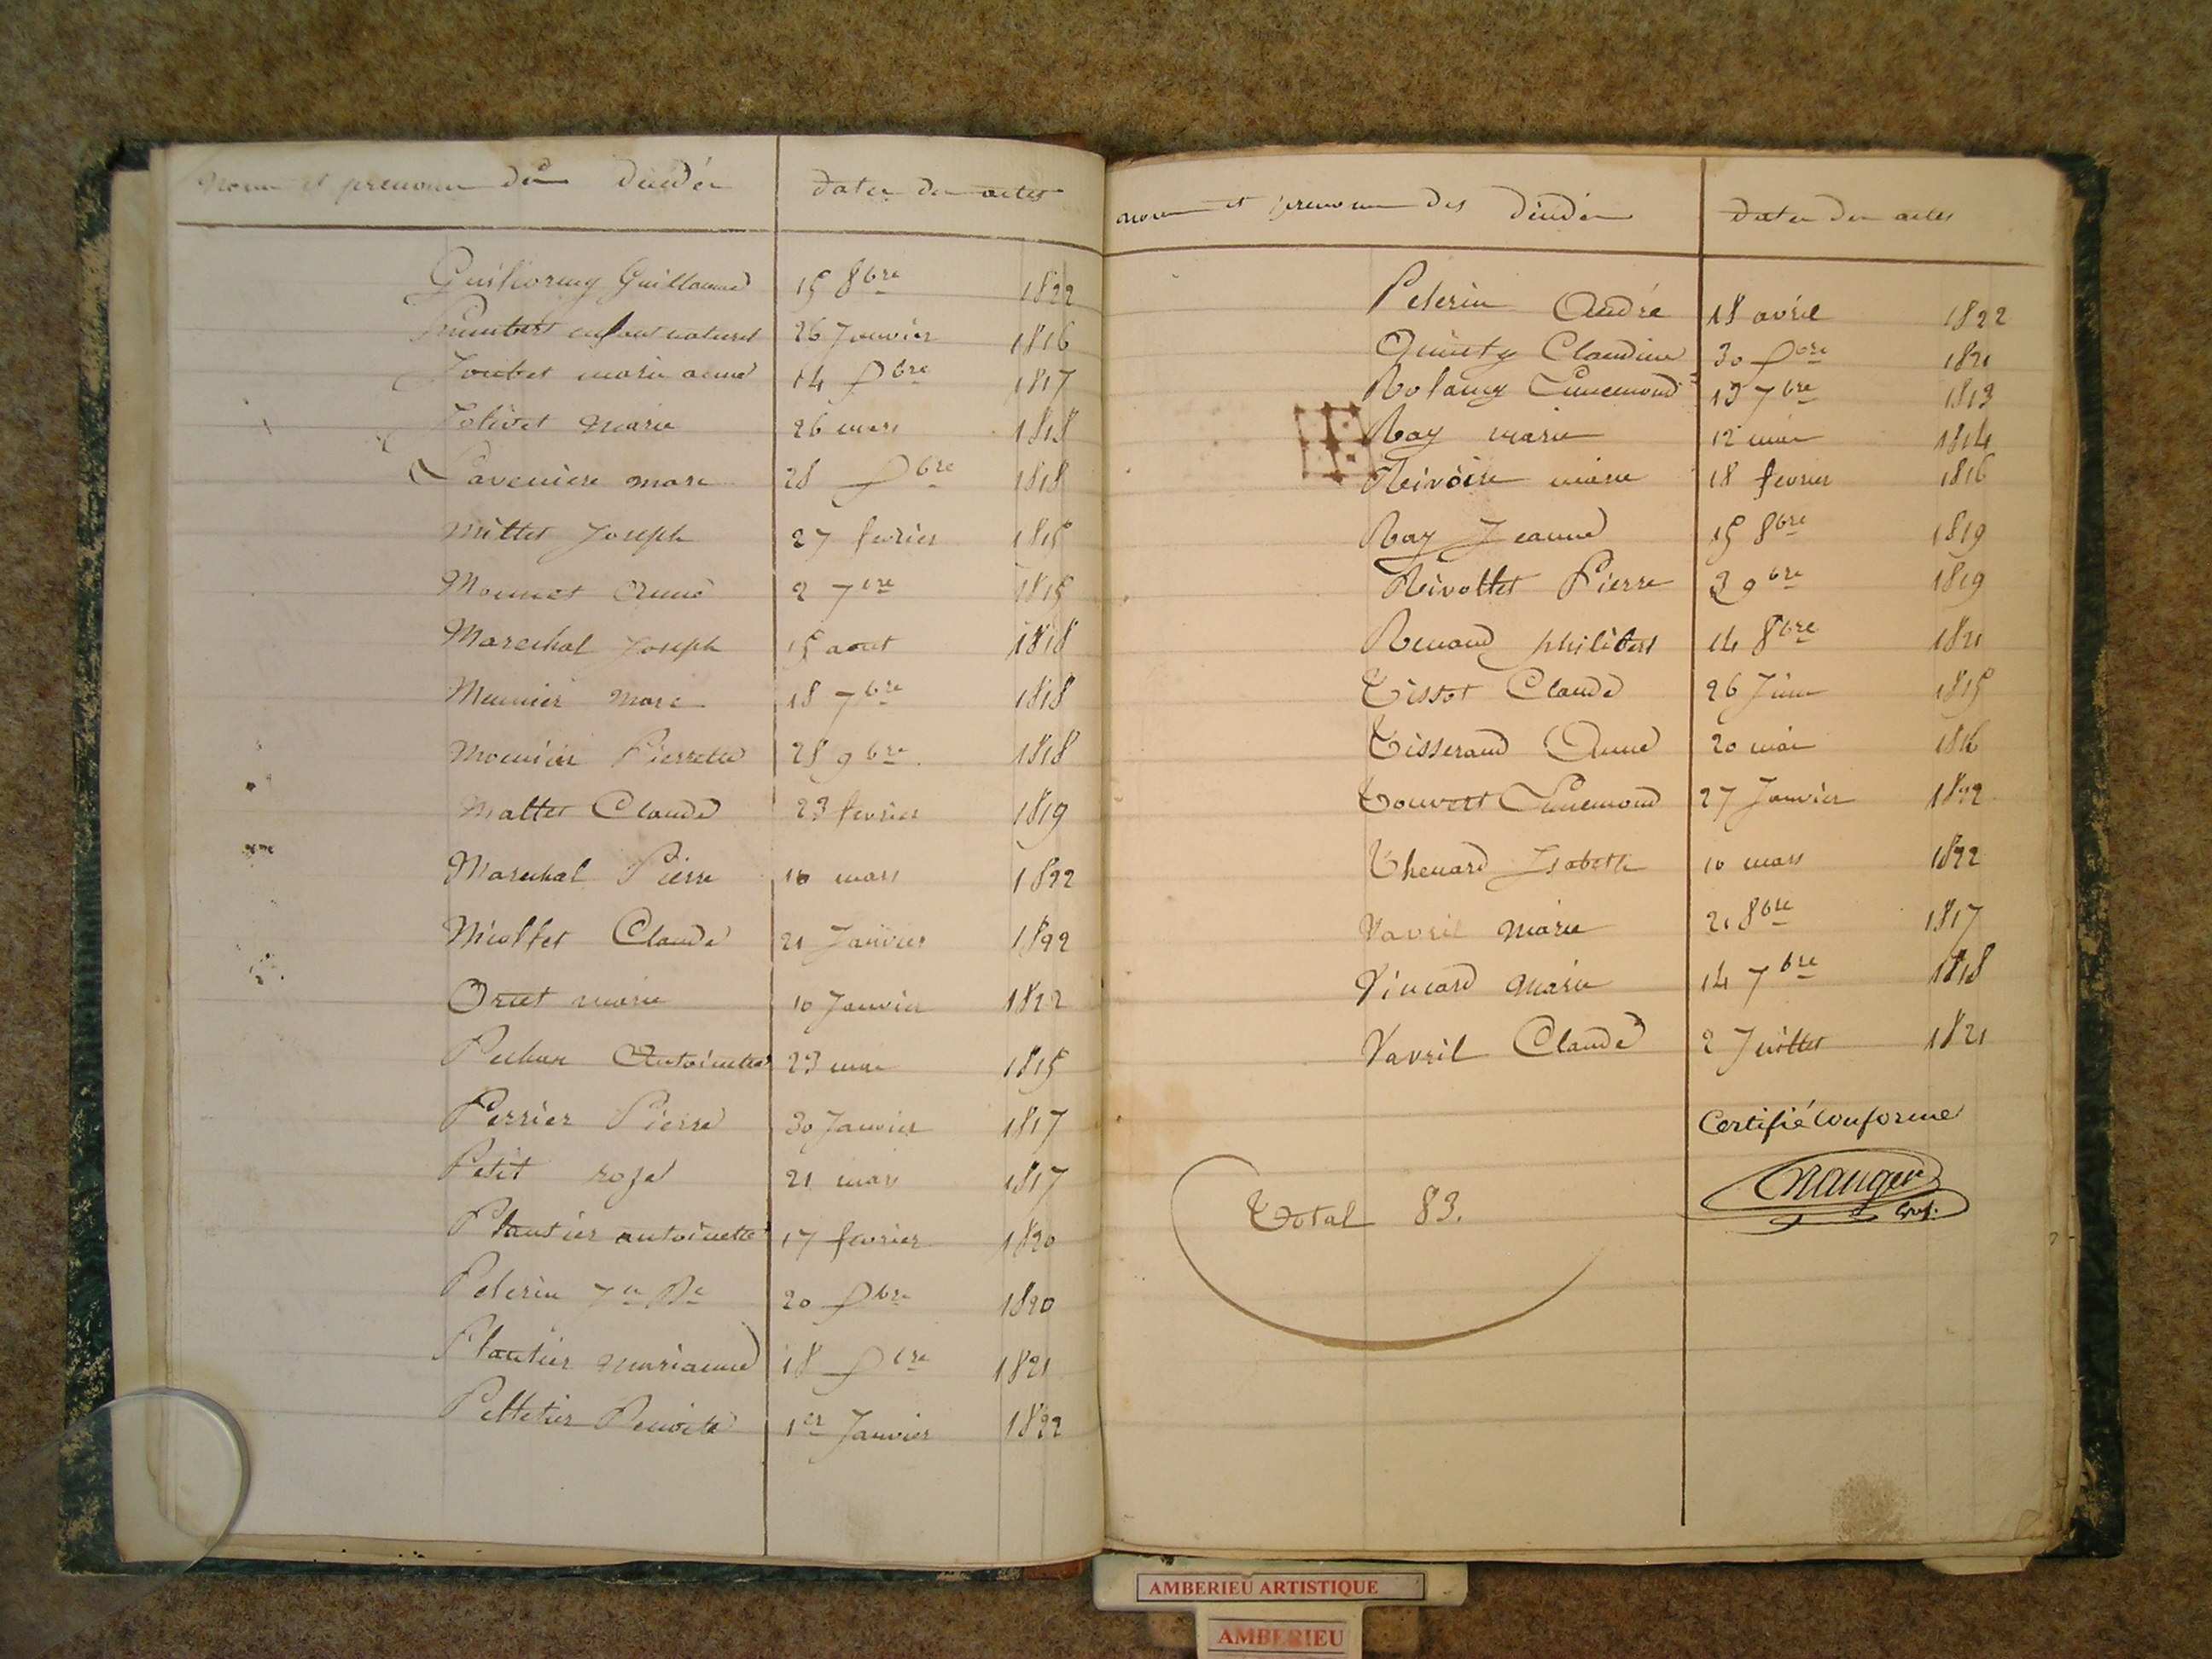 noms et prenoms des décédés dates des actes
Guillaume 15 8bre 1822
enfant naturel 26 Janvier 1816
Joubet marie anne 14 Xbre 1817
Jolivet marie 26 mars 1818
Laveniere marc 28 Xbre 1818
Millet Joseph 27 fevrier 1815
Monnet Anne 2 7bre 1815
Marechal Joseph 15 aout 1818
Meunier marc 18 7bre 1818
Mounier Pierrette 28 9bre 1818
Mallet Claude 23 fevrier 1819
Marechal Pierre 10 mars 1822
Claude 21 Janvier 1822
Orset marie 10 Janvier 1822
Antoinette 23 mai 1815
Perrier Pierre 30 Janvier 1817
Petit roze 21 mars 1817
Plantier antoinette 17 fevrier 1820
Pelerin Jn Bte 20 Xbre 1820
Plantier marianne 18 Xbre 1821
Pelletier Benoite 1er Janvier 1822
noms et prenoms des décédés dates des actes
Pelerin André 18 avril 1822
Claudine 30 Xbre 1821
Ennemond 13 7bre 1813
Ray marie 12 mai 1814
Rivoire marie 18 fevrier 1816
Ray Jeanne 15 8bre 1819
Rivollet Pierre 3 9bre 1819
Renaud philibert 14 8bre 1821
Tissot Claude 26 Juin 1815
Tisserand Anne 20 mai 1816
Touvert Ennemond 27 Janvier 1822
Thenard Isabelle 10 mars 1822
Vavril marie 21 8bre 1817
Vincard marie 14 7bre 1818
Vavril Claude 2 Juillet 1821
Certifié conforme
Total 83.
AMBERIEU ARTISTIQUE
AMBERIEU